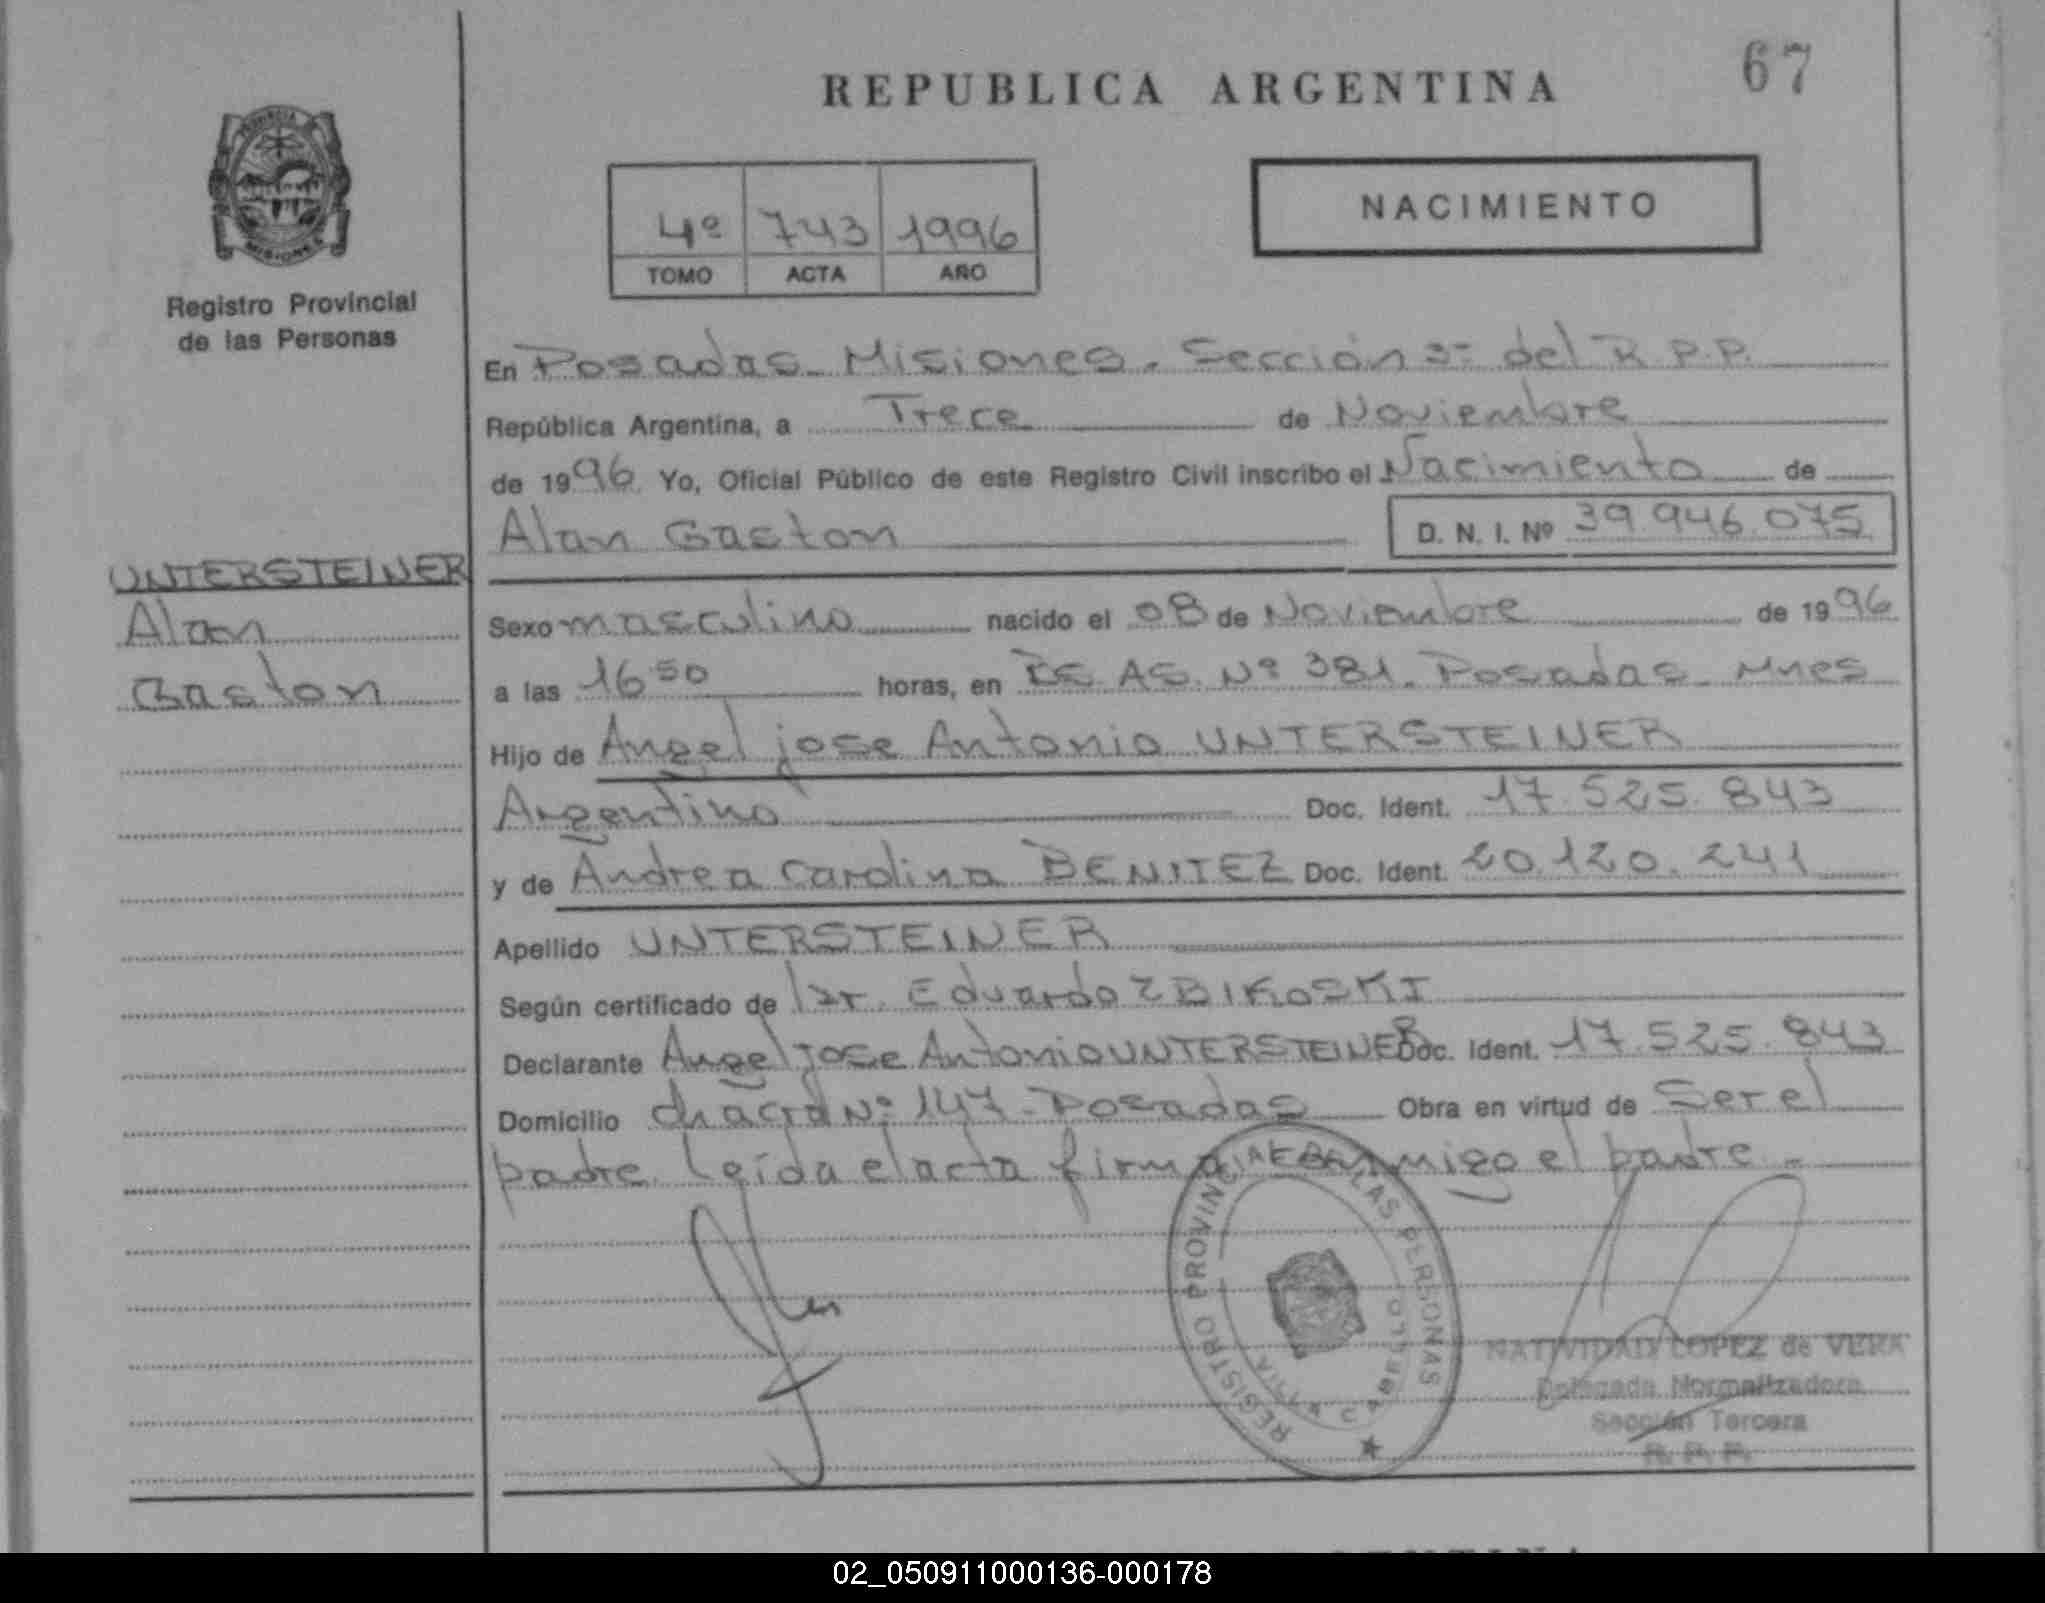 67
REPUBLICA ARGENTINA
PROVINCIA
MISIONES
Registro Provincial
de las Personas
4º 743 1996
TOMO ACTA AÑO
NACIMIENTO
En Posadas Misiones. Sección 3ª del R.P.P.
República Argentina, a Trece de Noviembre
de 1996. Yo, Oficial Público de este Registro Civil inscribo el Nacimiento de
Alan Gaston D. N. I. Nº 39.946.075
UNTERSTEINER
Alan
Gaston
Sexo masculino nacido el 08 de Noviembre de 1996
a las 16 50 horas, en BS. AS. Nº 381. Posadas Mnes
Hijo de Angel jose Antonio UNTERSTEINER
Argentino Doc. Ident. 17.525.843
y de Andrea Carolina BENITEZ Doc. Ident. 20.120.241
Apellido UNTERSTEINER
Según certificado de Dr. Eduardo ZBIKOSKI
Declarante Angel Jose Antonio UNTERSTEINER Doc. Ident. 17.525.843
Domicilio chacra Nº 147 - Posadas Obra en virtud de Ser el
padre. Leída el acta firma conmigo el padre -
REGISTRO PROVINCIAL DE LAS PERSONAS
NATIVIDAD LOPEZ de VERA
Delegada Normalizadora
Sección Tercera
R. P. P.
02_050911000136-000178